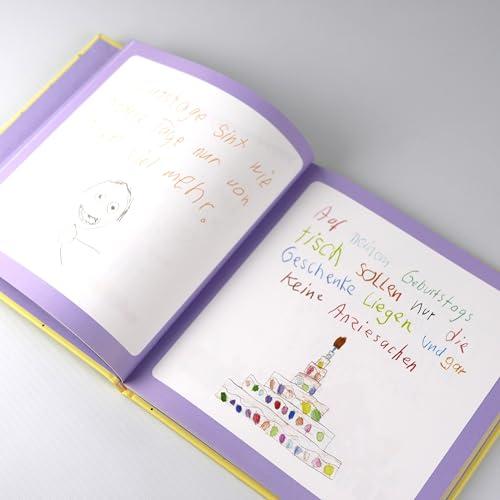 Sint wie
Tage nur von
viel mehr.
Aof meinem Geburtstags
tisch sollen nur die
Geschenke Liegen und gar
Keine Anziesachen